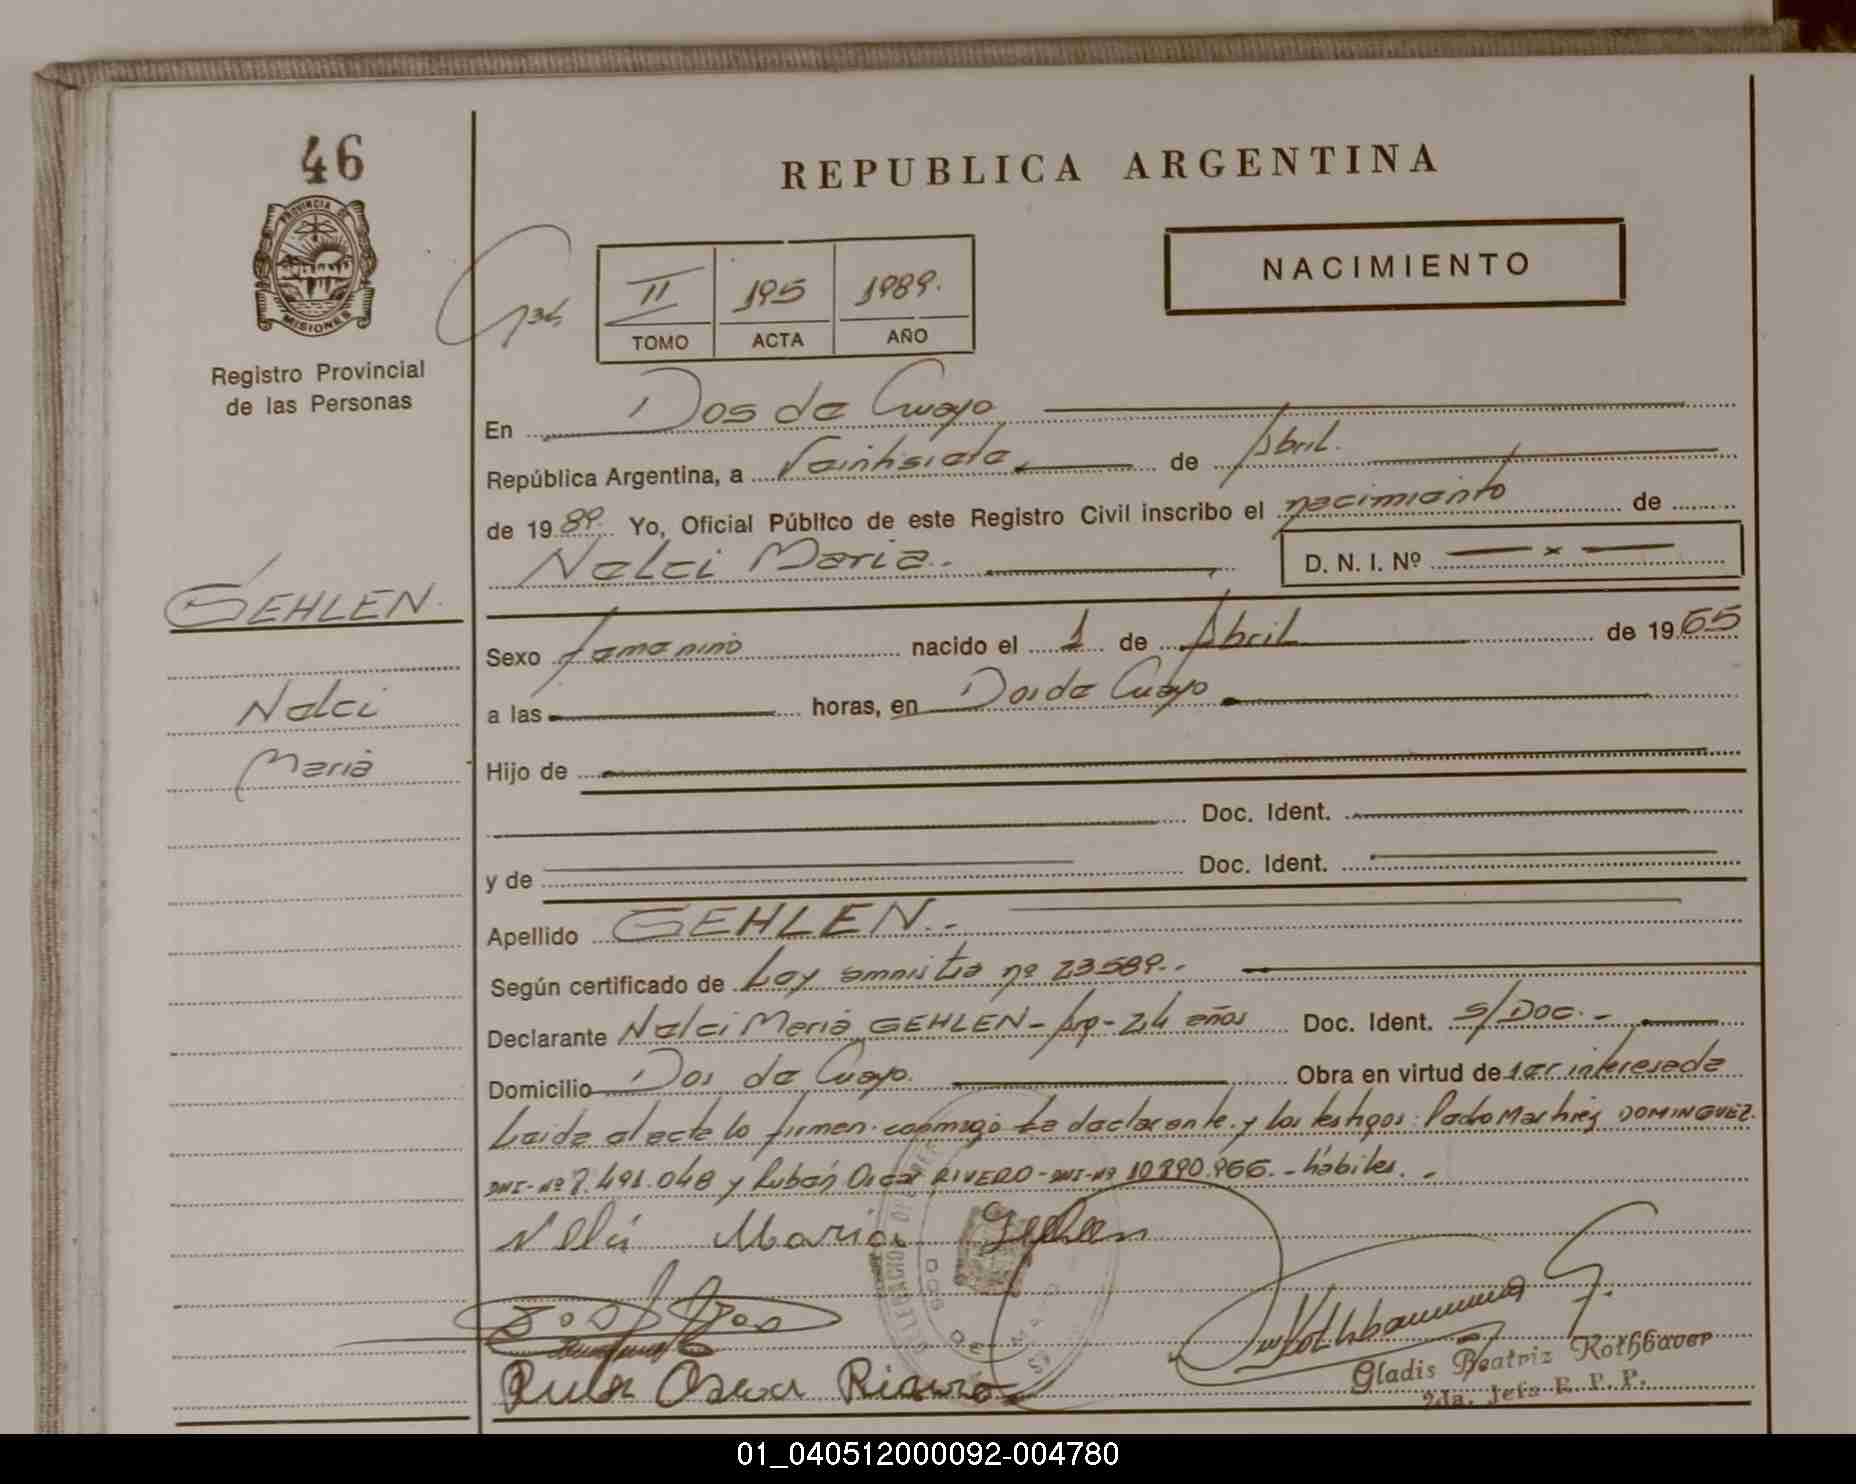 46
REPUBLICA ARGENTINA
PROVINCIA DE
MISIONES
Registro Provincial
de las Personas
II 195 1989.
TOMO ACTA AÑO
NACIMIENTO
En Dos de Mayo
República Argentina, a Veintisiete de Abril.
de 1989. Yo, Oficial Público de este Registro Civil inscribo el nacimiento de
Nelci Maria.- D. N. I. Nº — x —
GEHLEN.
Nelci
Maria
Sexo femenino nacido el 1 de Abril de 1965
a las horas, en Dos de Mayo
Hijo de
Doc. Ident.
y de Doc. Ident.
Apellido GEHLEN.-
Según certificado de Ley amnistia nº 23589.-
Declarante Nelci Maria GEHLEN - Arg - 24 años Doc. Ident. S/DOC.-
Domicilio Dos de Mayo. Obra en virtud de ser interesada
Leida el acta lo firman conmigo la declarante y los testigos: Pedro Martires DOMINGUEZ.
DNI-Nº 7.491.048 y Rubén Oscar RIVERO - DNI-Nº 10.890.966.- hábiles.-
Maria Gehlen
Gladis Beatriz Rothbauer
2da. Jefa R. P. P.
01_040512000092-004780